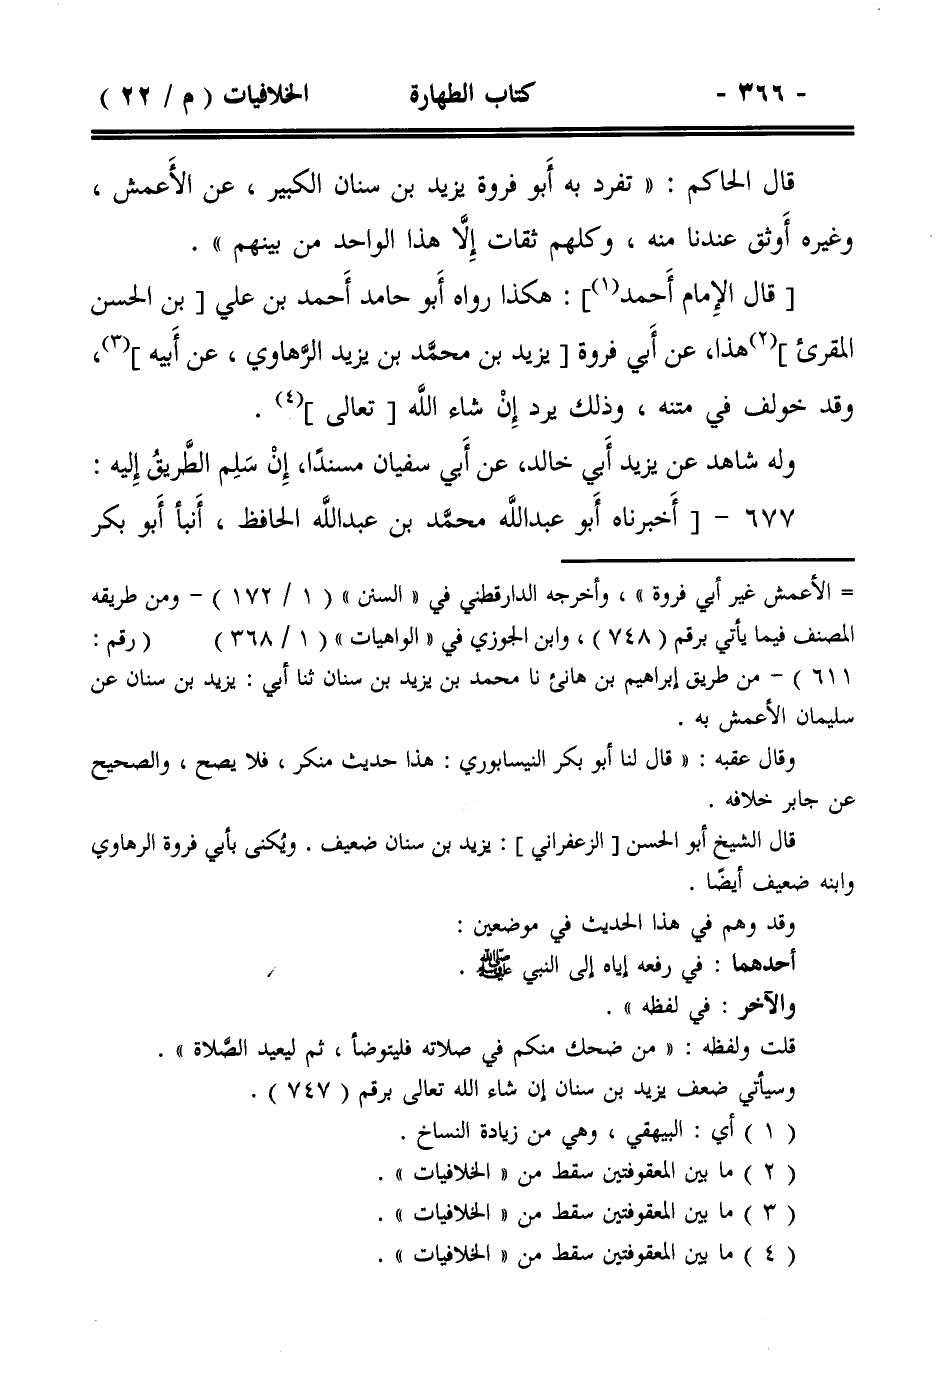 - ٣٦٦ - كتاب الطهارة الخلافيات ( م / ٢٢ )
قال الحاكم : « تفرد به أَبو فروة يزيد بن سنان الكبير ، عن الأَعمش ،
وغيره أَوثق عندنا منه ، وكلهم ثقات إِلَّا هذا الواحد من بينهم » .
[ قال الإِمام أَحمد(١)] : هكذا رواه أَبو حامد أَحمد بن علي [ بن الحسن
المقرئ ](٢)هذا، عن أَبي فروة [ يزيد بن محمَّد بن يزيد الرَّهاوي ، عن أَبيه ](٣)،
وقد خولف في متنه ، وذلك يرد إِنْ شاء اللَّه [ تعالى ](٤) .
وله شاهد عن يزيد أَبي خالد، عن أَبي سفيان مسندًا، إِنْ سَلِم الطَّريقُ إِليه :
٦٧٧ - [ أَخبرناه أَبو عبداللَّه محمَّد بن عبداللَّه الحافظ ، أَنبأ أَبو بكر
= الأعمش غير أبي فروة » ، وأخرجه الدارقطني في « السنن » ( ١ / ١٧٢ ) - ومن طريقه
المصنف فيما يأتي برقم ( ٧٤٨ ) ، وابن الجوزي في « الواهيات » ( ١ / ٣٦٨ ) ( رقم :
٦١١ ) - من طريق إبراهيم بن هانئ نا محمد بن يزيد بن سنان ثنا أبي : يزيد بن سنان عن
سليمان الأعمش به .
وقال عقبه : « قال لنا أبو بكر النيسابوري : هذا حديث منكر ، فلا يصح ، والصحيح
عن جابر خلافه .
قال الشيخ أبو الحسن [ الزعفراني ] : يزيد بن سنان ضعيف . ويُكنى بأبي فروة الرهاوي
وابنه ضعيف أيضًا .
وقد وهم في هذا الحديث في موضعين :
أحدهما : في رفعه إياه إلى النبي ﷺ .
والآخر : في لفظه » .
قلت ولفظه : « من ضحك منكم في صلاته فليتوضأ ، ثم ليعيد الصَّلاة » .
وسيأتي ضعف يزيد بن سنان إن شاء الله تعالى برقم ( ٧٤٧ ) .
( ١ ) أي : البيهقي ، وهي من زيادة النساخ .
( ٢ ) ما بين المعقوفتين سقط من « الخلافيات » .
( ٣ ) ما بين المعقوفتين سقط من « الخلافيات » .
( ٤ ) ما بين المعقوفتين سقط من « الخلافيات » .